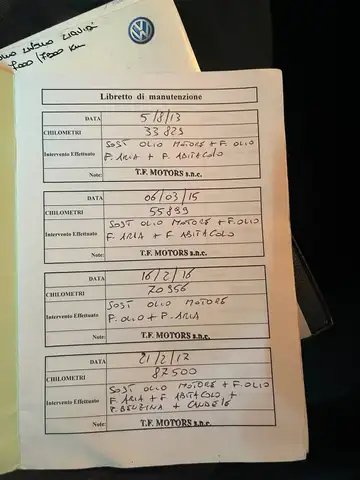 7000/7500 Km
Libretto di manutenzione
DATA 5/8/13
CHILOMETRI 33829
Intervento Effettuato SOST OLIO MOTORE + F. OLIO
F. ARIA + F. ABITACOLO
Note: T.F. MOTORS s.n.c.
DATA 06/03/15
CHILOMETRI 55899
Intervento Effettuato SOST OLIO MOTORE + F. OLIO
F. ARIA + F ABITACOLO
Note: T.F. MOTORS s.n.c.
DATA 16/2/16
CHILOMETRI 70956
Intervento Effettuato SOST OLIO MOTORE
F. OLIO + F. ARIA
Note: T.F. MOTORS s.n.c.
DATA 21/2/17
CHILOMETRI 87500
Intervento Effettuato SOST OLIO MOTORE + F. OLIO
F ARIA + F ABITACOLO +
F. BENZINA + CANDELE
Note: T.F. MOTORS s.n.c.